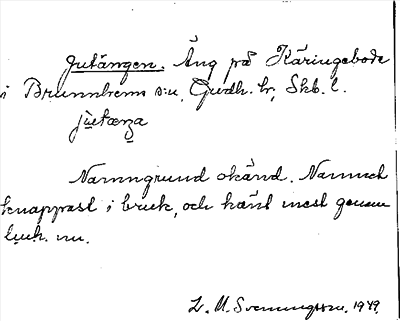 Jutängen. Äng på Käringabode
i Brunnhems s:n, Gudh. hr, Skb. l.
jʉtæŋa
Namngrund okänd. Namnet
knappast i bruk, och känt mest genom
ljuk. nu.
L. M. Svenungsson. 1949.